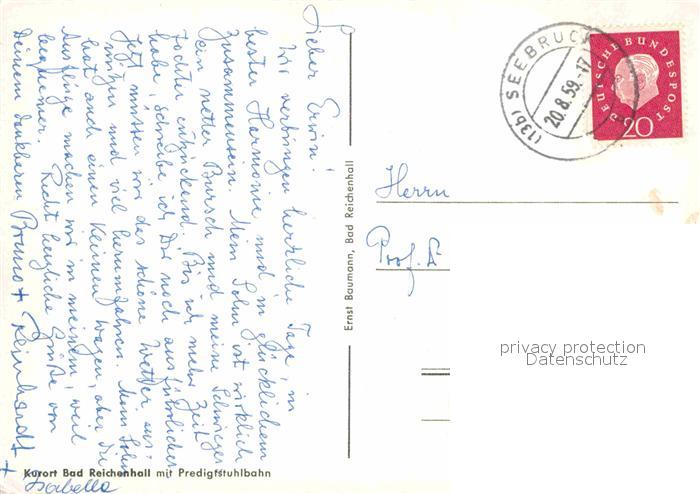 Lieber Erwin!
Wir verbringen herrliche Tage, in
bester Harmonie und in glücklichem
Zusammensein. Mein Sohn ist wirklich
ein netter Bursch und meine Schwieger-
tochter entzückend. Bis ich mehr Zeit
habe, schreibe ich Dir noch ausführlicher.
Jetzt müssen wir das schöne Wetter aus-
nützen und viel herumfahren. Mein Sohn
hat auch einen kleinen Wagen, aber die
Ausflüge machen wir in meinem, weil
bequemer. Recht herzliche Grüße von
Deinem dankbaren Bruno + Reinhardt +
+ Isabella
Kurort Bad Reichenhall mit Predigtstuhlbahn
Ernst Baumann, Bad Reichenhall
(13b) SEEBRUCK
20.8.59.-17
DEUTSCHE BUNDESPOST
20
Herrn
Prof. D
privacy protection
Datenschutz